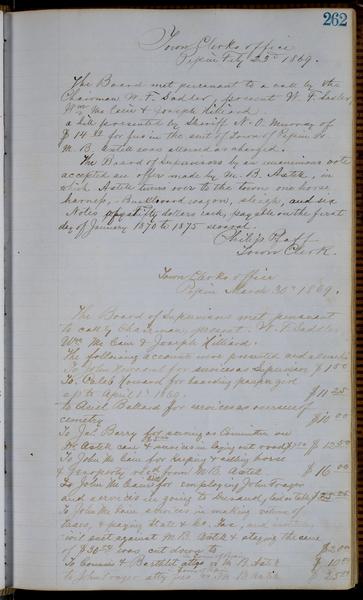 262
Town Clerks office
Pepin Feb 22d 1869.
The Board met persuant to a call by the
Chairman W. F. Sadler, present W. F. Sadler
Wm Mc Cain & Joseph Hilliard.
a bill presented by Sheriff N. O. Murray of
$ 14 for fees in the suit of Town of Pepin vs
M. B. Astek was allowed as charged.
The Board of Supervisors by an unanimous vote
accepted an offer made by M. B. Astek, in
which Astek turns over to the town one horse,
harness, wagon, sleigh, and six
Notes of fifty dollars each, payable on the first
day of January 1870 to 1875
Philip Pfaff
Town Clerk.
Town Clerks office
Pepin March 30th 1869.
The Board of Supervisors met persuant
to call by Chairman, present W. F. Sadler,
Wm Mc Cain & Joseph Hilliard.
The following accounts were presented and allowed
To John for services as Supervisor $ 1 50
To Caleb Howard for boarding pauper girl
up to April 1st 1869. $ 11 25
to Ariel Ballard for services as overseer of
cemetry $ 10 00
To Jas Barry for serving as Committee on
Astek case & services in laying out road $ 12 50
To John Mc Cain for keeping & selling horse
& property rec'd from M. B. Astek $ 16 00
To John Mc Cain for employing John Frazer
and services in going to Durand,
To John Mc Cain services in making return of
taxes, & paying State & Co. Tax, and
civil suit against M. B. Astek & staying the same
of $30 was cut down to $ 20 00
To & Bartlett attys vs M. B. Astek $ 10 00
to John Frazer atty fees vs M. B. Astek $ 25 00